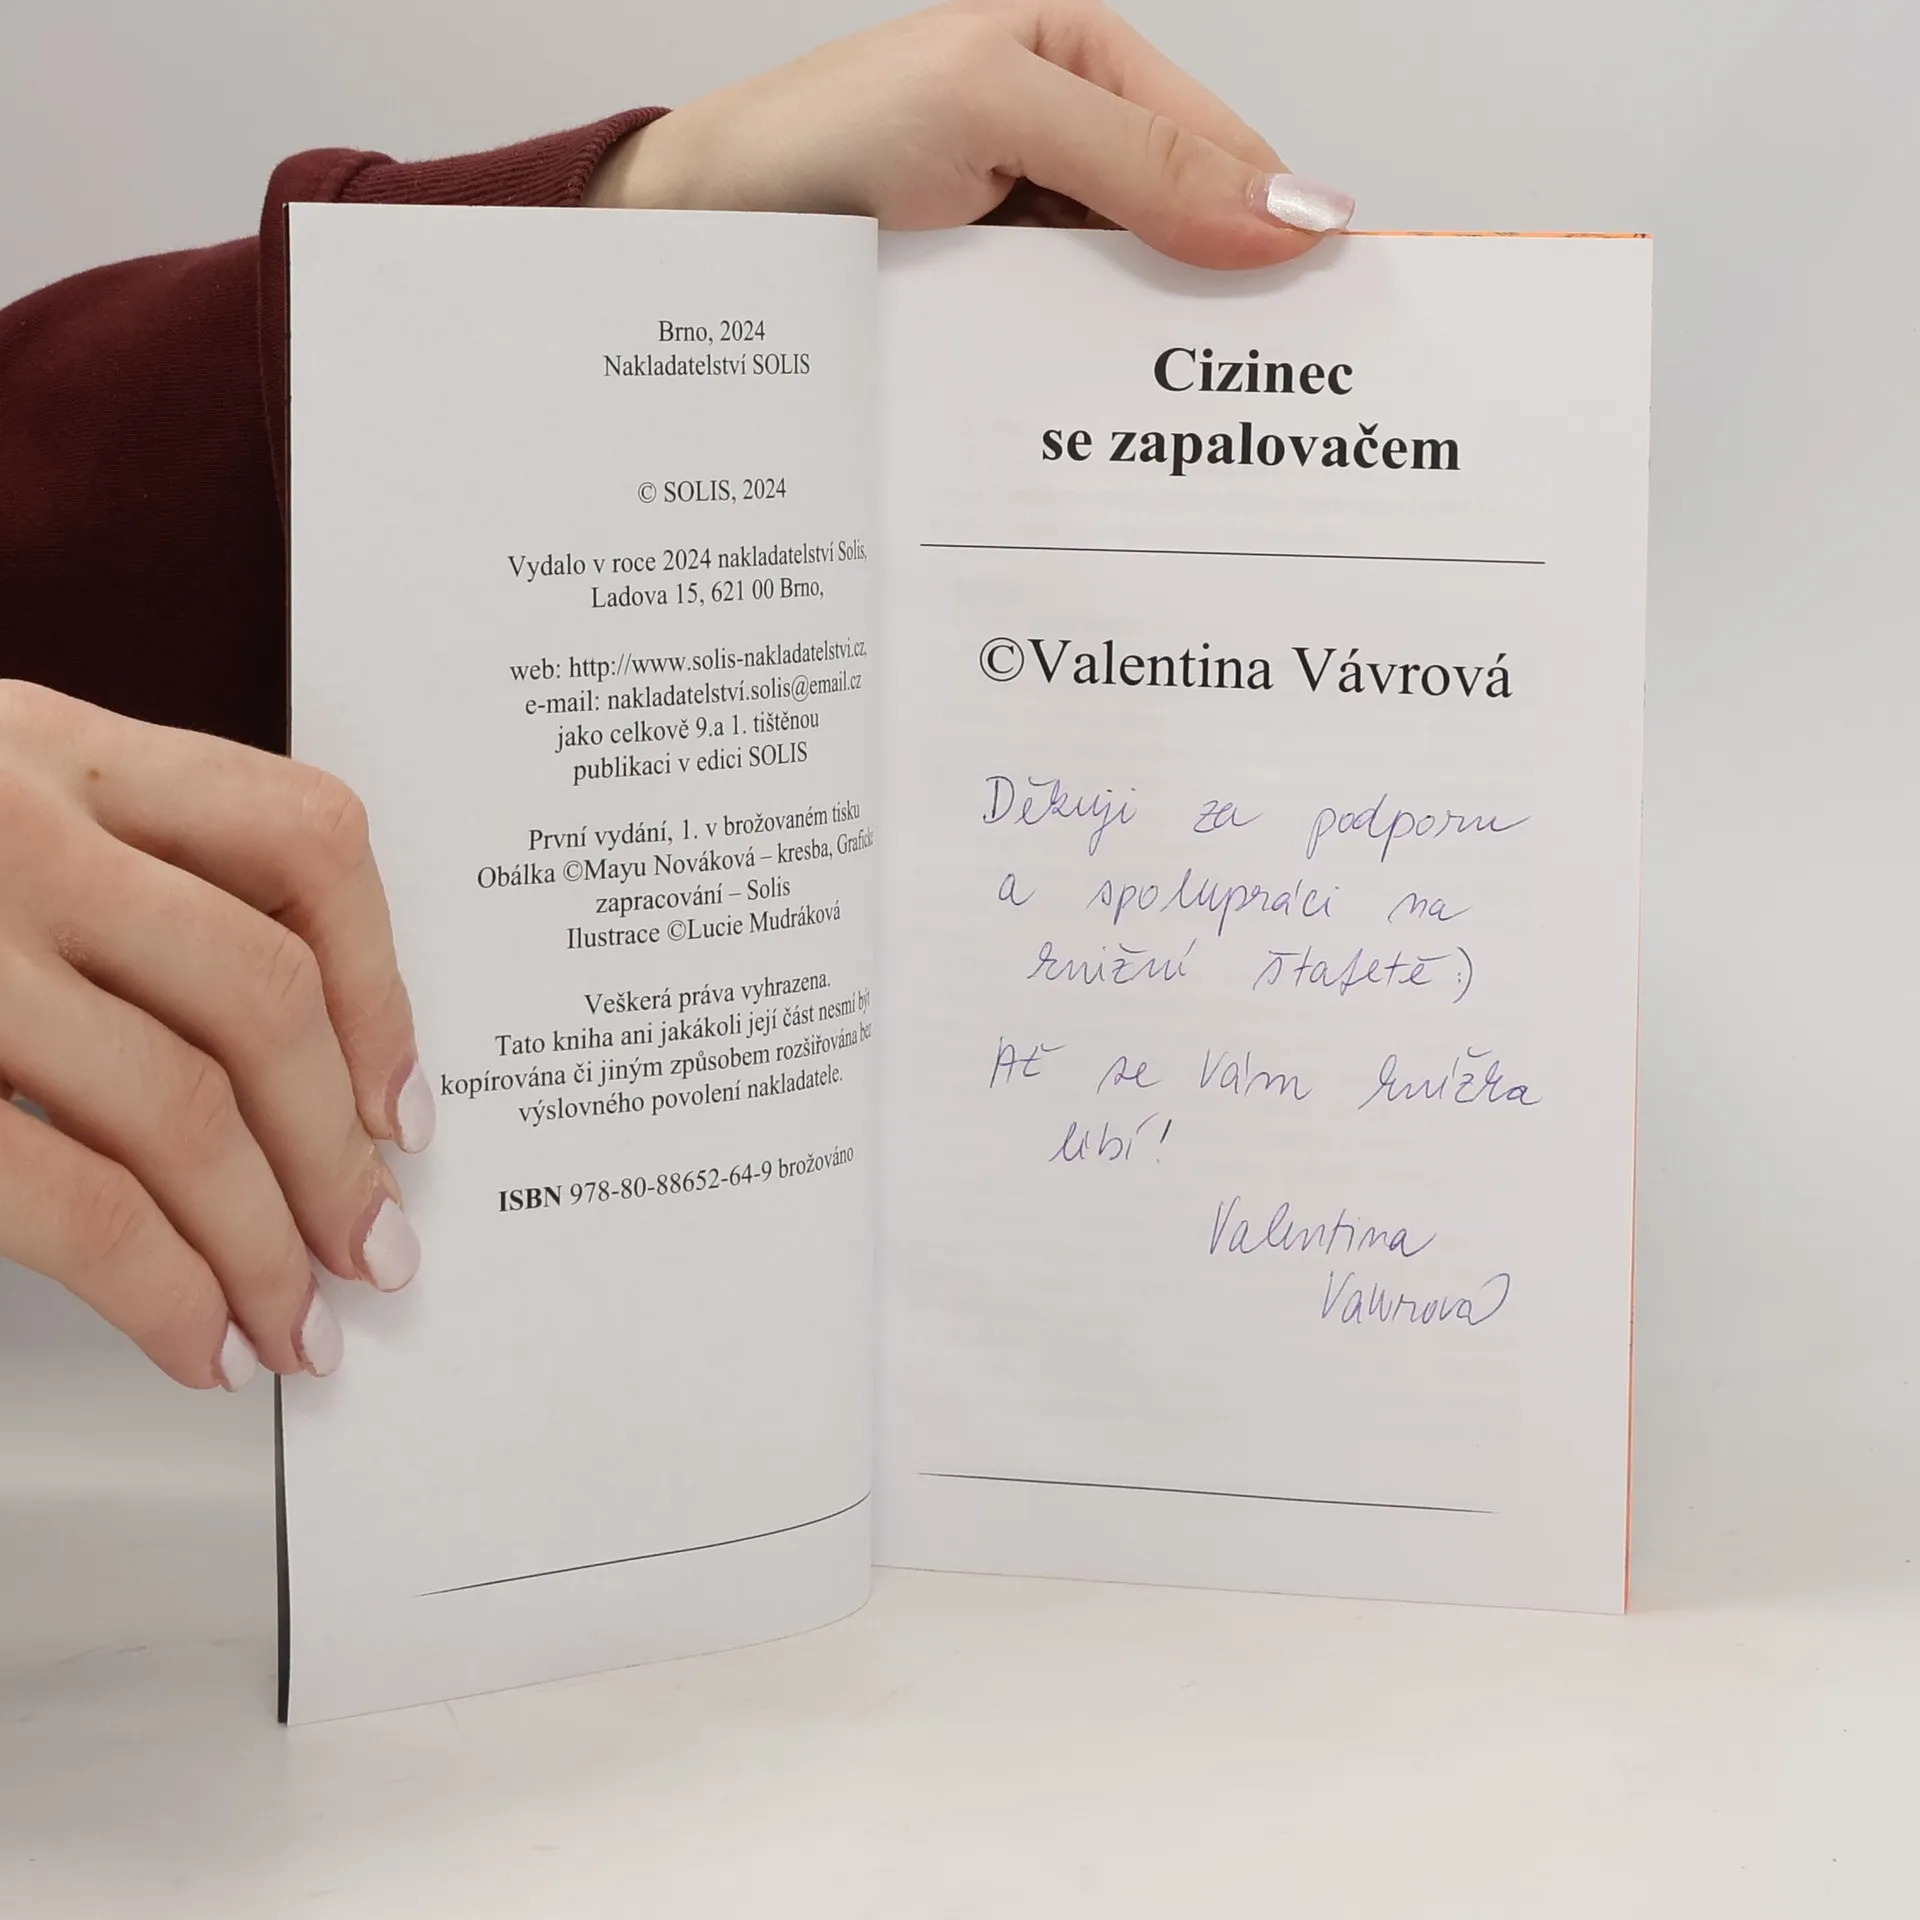 Brno, 2024
Nakladatelství SOLIS
© SOLIS, 2024
Vydalo v roce 2024 nakladatelství Solis,
Ladova 15, 621 00 Brno,
web: http://www.solis-nakladatelstvi.cz,
e-mail: nakladatelství.solis@email.cz
jako celkově 9.a 1. tištěnou
publikaci v edici SOLIS
První vydání, 1. v brožovaném tisku
Obálka ©Mayu Nováková – kresba, Grafické
zapracování – Solis
Ilustrace ©Lucie Mudráková
Veškerá práva vyhrazena.
Tato kniha ani jakákoli její část nesmí být
kopírována či jiným způsobem rozšiřována bez
výslovného povolení nakladatele.
ISBN 978-80-88652-64-9 brožováno
Cizinec
se zapalovačem
©Valentina Vávrová
Děkuji za podporu
a spolupráci na
knižní štafetě :)
Ať se Vám knížka
líbí!
Valentina
Vávrová